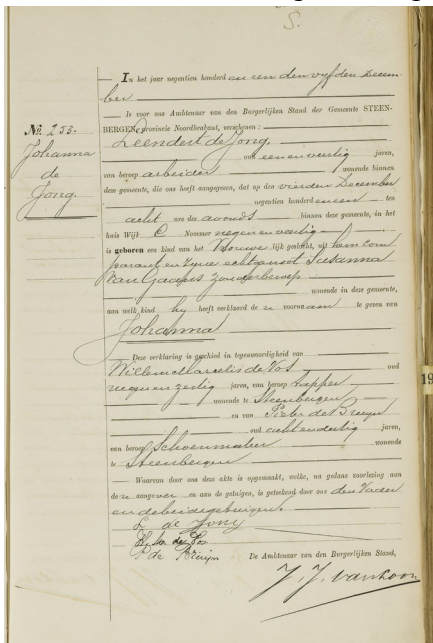 S.
In het jaar negentien honderd en een den vyfden Decem-
ber
Is voor ons Ambtenaar van den Burgerlijken Stand der Gemeente STEEN-
BERGEN, provincie Noordbrabant, verschenen:
Leendert de Jong,
oud eenenveertig jaren,
van beroep arbeider wonende binnen
deze gemeente, die ons heeft aangegeven, dat op den vierden December
negentien honderd en een ten
acht ure des avonds binnen deze gemeente, in het
huis Wijk C Nommer negenenveertig
is geboren een kind van het Vrouwelijk geslacht, uit hem com
parant en zyne echtgenoot Susanna
van Gaans zonder beroep
wonende in deze gemeente,
aan welk kind hy heeft verklaard den voornaam te geven van
Johanna
Deze verklaring is geschied in tegenwoordigheid van
Willem Marcelis de Vos oud
negenenzestig jaren, van beroep tapper
wonende te Steenbergen
en van Pieter de Bruyn
oud achtendertig jaren,
van beroep Schoenmaker wonende
te Steenbergen
Waarvan door ons deze akte is opgemaakt, welke, na gedane voorlezing aan
den aangever en aan de getuigen, is geteekend door ons den Vader
en de beide getuigen.
L de Jong
de Vos
P de Bruijn
De Ambtenaar van den Burgerlijken Stand,
J. J. van Loon
No. 253.
Johanna
de
Jong.
19